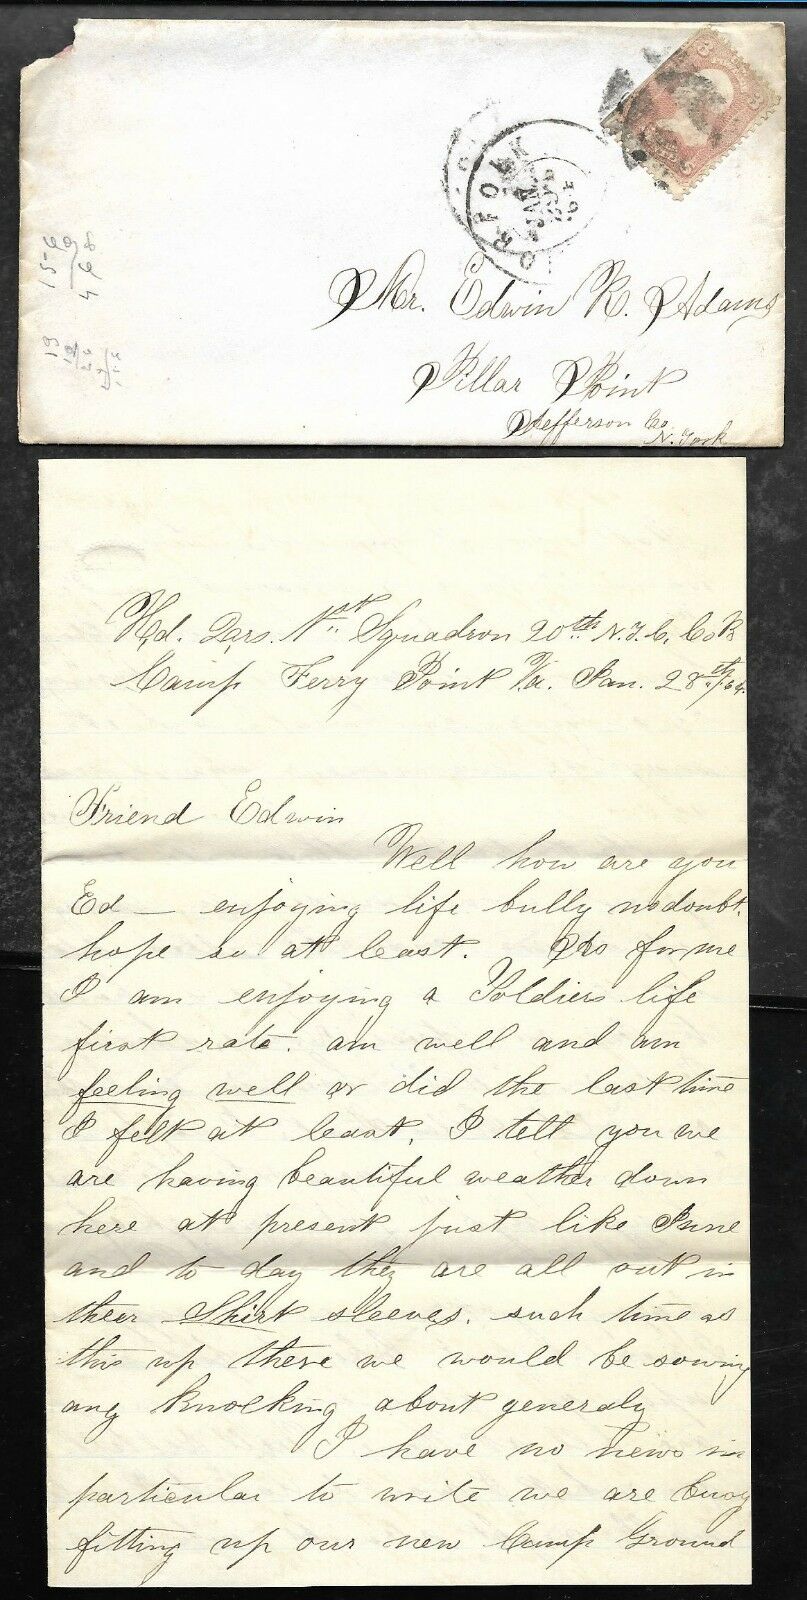 NORFOLK
JAN
Mr. Edwin R. Adams
Pillar Point
Jefferson Co.
N. York
Hd. Qars. 1st Squadron 20th N.Y.C. Co K
Camp Ferry Point Va. Jan. 28th/64.
Friend Edwin
Well how are you
Ed — enjoying life bully no doubt.
hope so at least. As for me
I am enjoying a Soldiers life
first rate. am well and am
feeling well or did the last time
I felt at least, I tell you we
are having beautiful weather down
here at present just like June
and to day they are all out in
their Shirt sleeves. such time as
this up there we would be sowing
and knocking about generaly
I have no news in
particular to write we are busy
fitting up our new Camp Ground